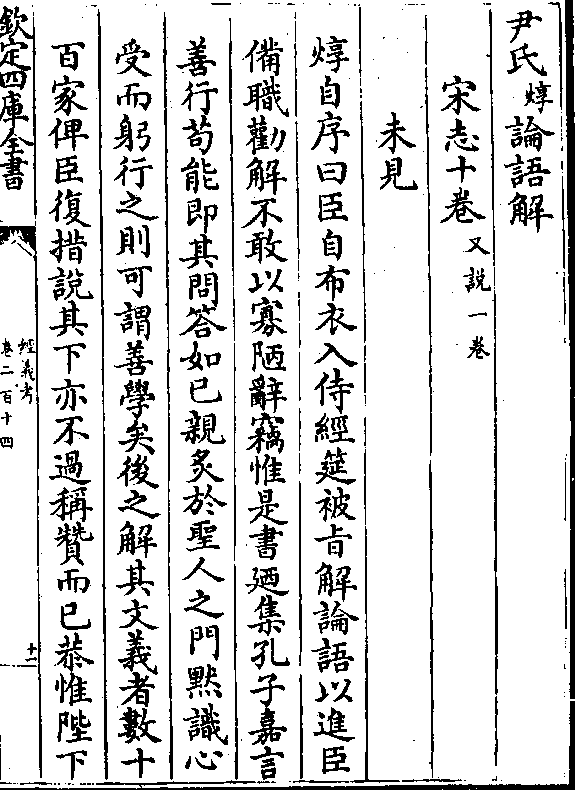 尹氏焞論語解
宋志十卷又說一卷
未見
焞自序曰臣自布衣入侍經筵被㫖解論語以進臣
備職勸解不敢以寡陋辭竊惟是書廼集孔子嘉言
善行苟能即其問答如已親炙於聖人之門黙識心
受而躬行之則可謂善學矣後之解其文義者數十
百家俾臣復措說其下亦不過稱贊而已恭惟陛下
欽定四庫全書
經義考
卷二百十四
十二